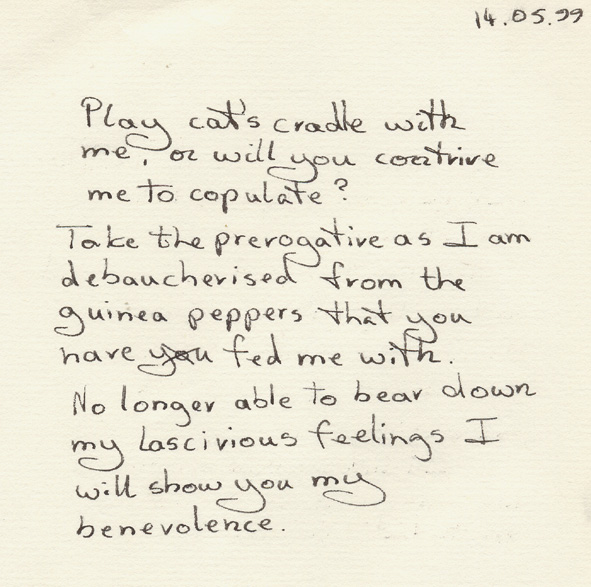 14.05.99
Play cat's cradle with
me, or will you contrive
me to copulate?
Take the prerogative as I am
debaucherised from the
guinea peppers that you
have you fed me with.
No longer able to bear down
my lascivious feelings I
will show you my
benevolence.